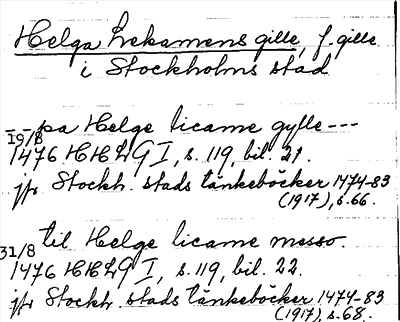 Helga Lekamens gille, f. gille
i Stockholms stad
--- pa Helge licame gylle ---
19/8
1476 HHLG I, s. 119, bil. 21.
jfr Stockh. stads tänkeböcker 1474-83
(1917), s. 66.
31/8 til Helge licame messo.
1476 HHLG I, s. 119, bil. 22.
jfr Stockh. stads tänkeböcker 1474-83
(1917), s. 68.